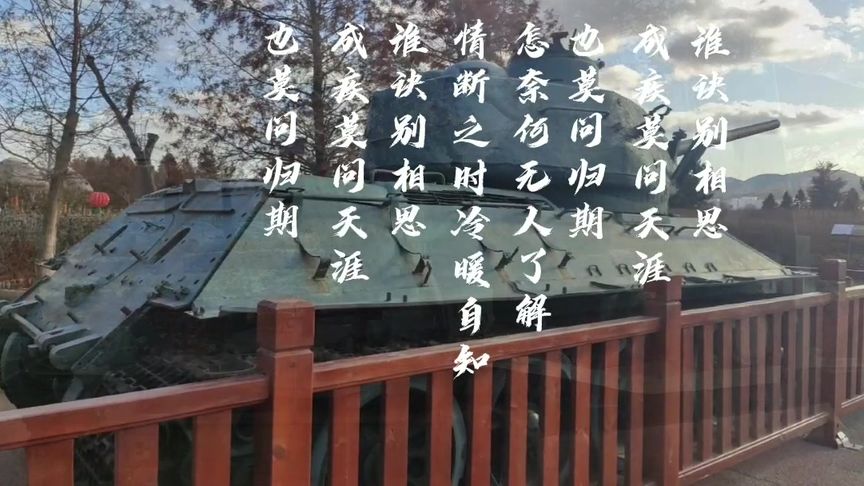 谁诀别相思
成疾莫问天涯
也莫问归期
怎奈何无人了解
情断之时冷暖自知
谁诀别相思
成疾莫问天涯
也莫问归期